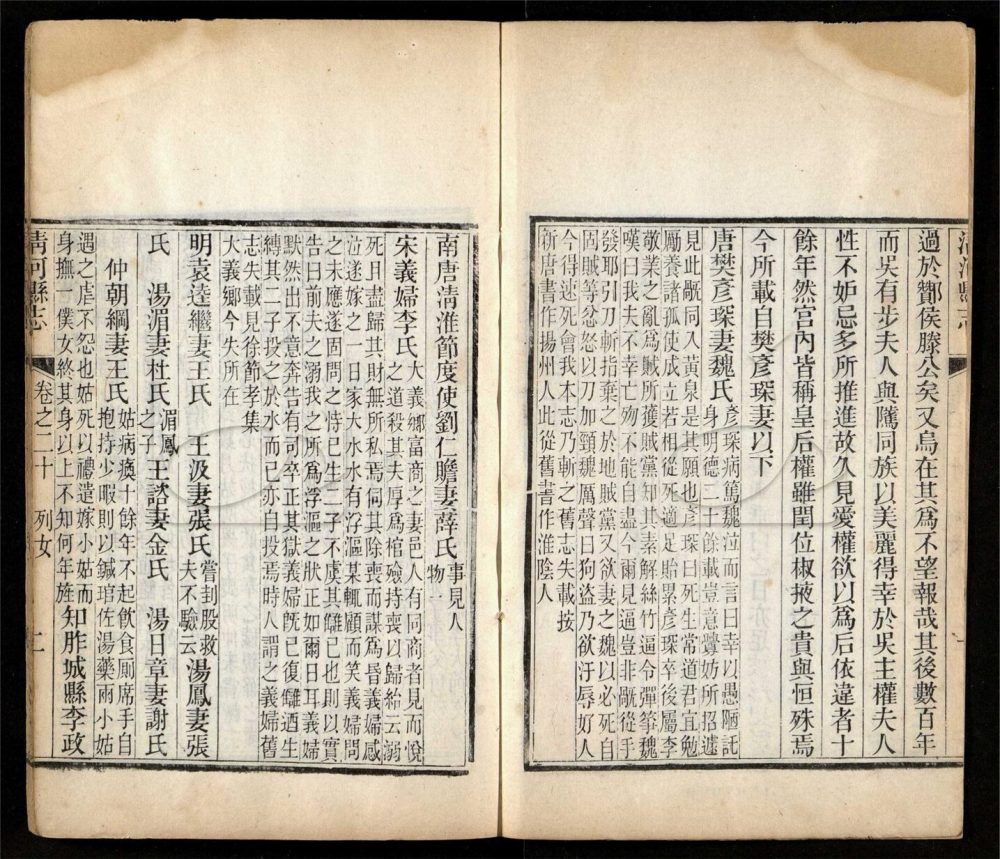 清河縣志
過於酇侯滕公矣又烏在其爲不望報哉其後數百年
而吳有步夫人與隲同族以美麗得幸於吳主權夫人
性不妒忌多所推進故久見愛權欲以爲后依違者十
餘年然宮內皆稱皇后權雖閏位椒掖之貴與恒殊焉
今所載自樊彥琛妻以下
唐樊彥琛妻魏氏
彥琛病篤魏泣而言曰幸以愚陋託
身明德二十餘載豈意釁妨所招遽
見此敵同入黃泉是其願也彥琛曰死生常道君宜勉
勵養諸孤使成立若相從死適足貽累彥琛卒後屬李
敬業之亂爲賊所獲賊黨知其素解絲竹逼令彈箏魏
嘆曰我夫不幸亡歿不能自盡今爾見逼豈非敵從手
發耶引刀斬指棄之於地賊黨又欲妻之魏以必死自
固賊等忿怒以刀加頸魏厲聲曰狗盜乃欲汙辱好人
今得速死會我本志乃斬之舊志失載按
新唐書作揚州人此從舊書作淮陰人
南唐淸淮節度使劉仁贍妻薛氏
事見人
物
宋義婦李氏
大義鄉富商之妻邑人有同商者見而悅
之道殺其夫厚爲棺殮持喪以歸紿云溺
死且盡歸其財無所私焉伺其除喪而謀爲昏義婦感
泣遂嫁之一日家大水水有浮漚某輒顧而笑義婦問
之未應遂固問之恃已生二子不虞其讎已也則以實
告曰前夫之溺我之所爲浮漚之狀正如爾日耳義婦
默然出不意奔告有司卒正其獄義婦旣已復讎迺生
縛其二子投之於水而已亦自投焉時人謂之義婦舊
志失載見徐節孝集
大義鄉今失所在
明袁逵繼妻王氏　王汲妻張氏
嘗刲股救
夫不驗云
湯鳳妻張
氏　湯湄妻杜氏
湄鳳
之子
王諮妻金氏　湯日章妻謝氏
仲朝綱妻王氏
姑病瘓十餘年不起飲食厠席手自
抱持少暇則以鍼琯佐湯藥兩小姑
遇之虐不怨也姑死以禮遣嫁小姑而
身撫一僕女終其身以上不知何年旌
知胙城縣李政
清河縣志
卷之二十　列女
二